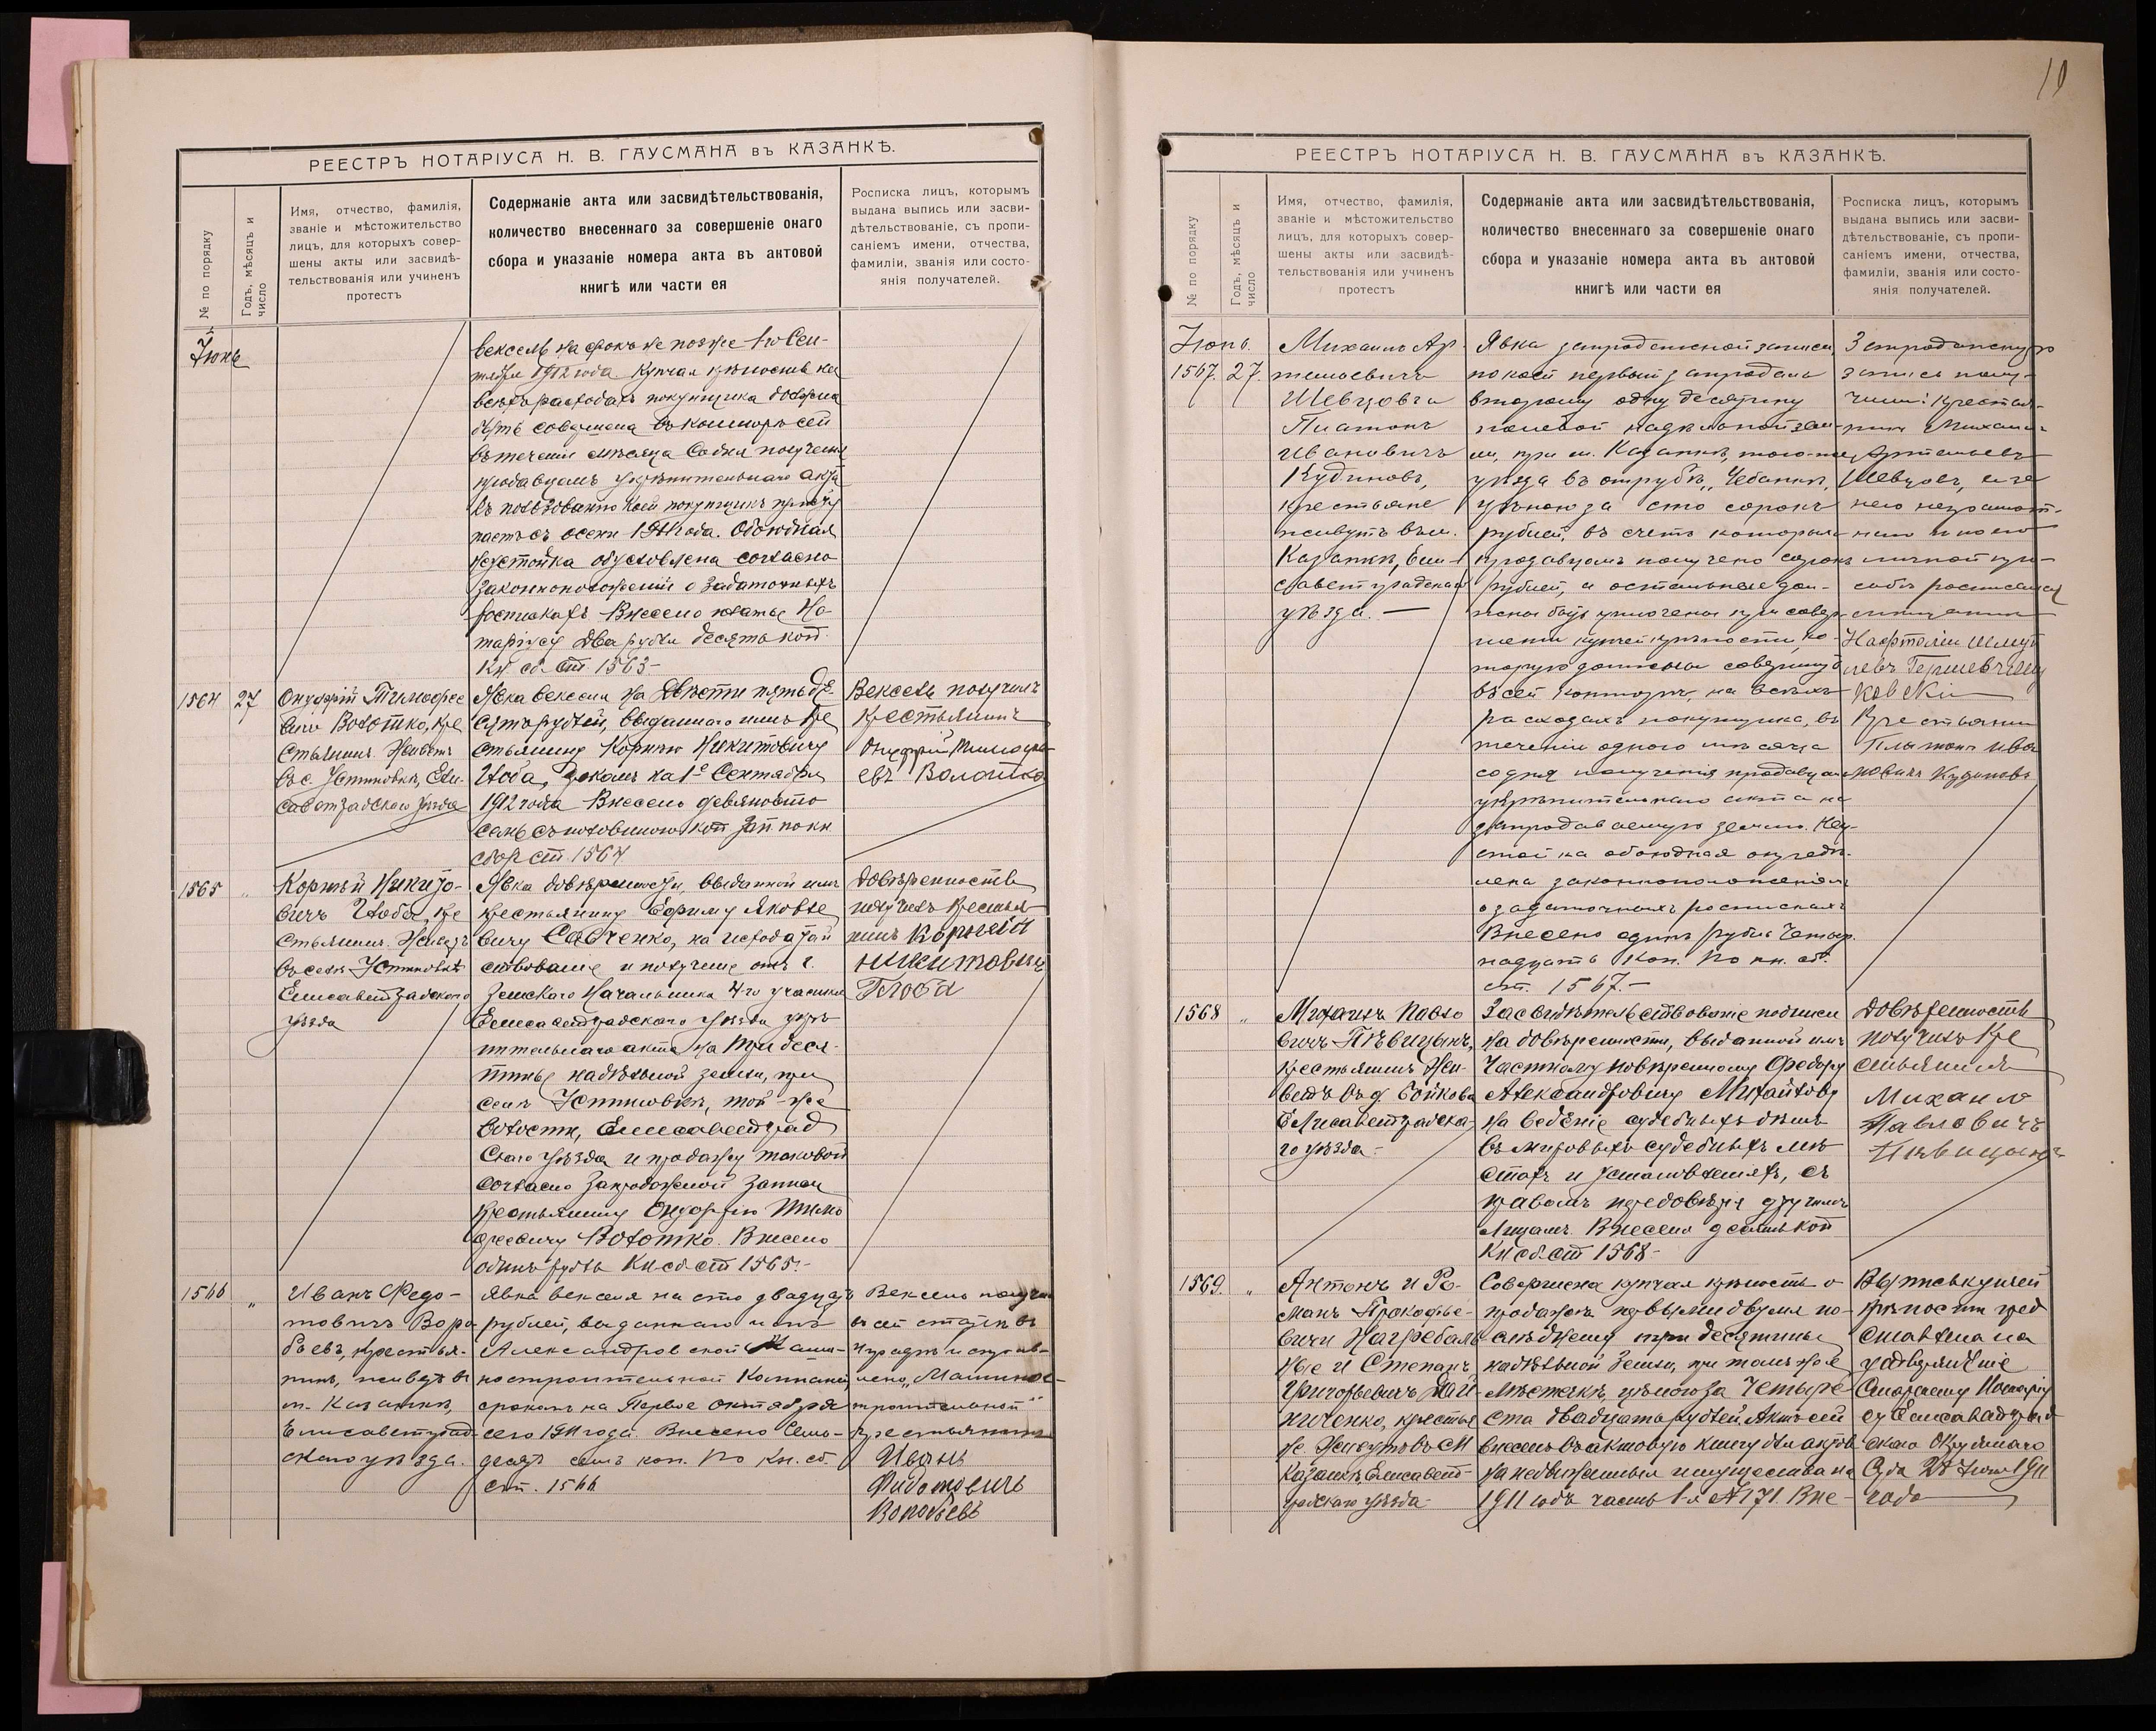 РЕЕСТРЪ НОТАРІУСА Н. В. ГАУСМАНА въ КАЗАНКѢ.
№ по порядку
Годъ, мѣсяцъ и
число
Имя, отчество, фамилія,
званіе и мѣстожительство
лицъ, для которыхъ совер-
шены акты или засвидѣ-
тельствованія или учиненъ
протестъ
Содержаніе акта или засвидѣтельствованія,
количество внесеннаго за совершеніе онаго
сбора и указаніе номера акта въ актовой
книгѣ или части ея
Росписка лицъ, которымъ
выдана выпись или засви-
дѣтельствованіе, съ пропи-
саніемъ имени, отчества,
фамиліи, званія или состо-
янія получателей.
Іюнь
вексель на срокъ не позже 1го Сен-
тября 1912 года. Купчая крѣпость на
всѣхъ расходахъ покупщика должна
быть совершена въ конторѣ сей
въ теченіи мѣсяца со дня полученія
продавцомъ укрѣпительнаго акта
Къ пользованію коей покупщикъ присту
паетъ съ осени 1911 года. Обоюдная
неустойка обусловлена согласно
законоположеній о задаточныхъ
роспискахъ Внесено платы Но-
таріусу два рубля десять коп.
Кн сб. ст. 1563-
1564 27
Онуфрій Тимофее
вичъ Волотко, кре
стьянинъ Живетъ
въ с. Устиновкѣ, Ели-
саветградскаго уѣзда
Явка векселя на Двѣсти пятьде-
сятъ рублей, выданнаго имъ кре
стьянину Корнѣю Никитовичу
Глоба, срокомъ на 1е Сентября
1912 года Внесено девяносто
семь съ половиною коп Зап по кн
сбор ст. 1564
Вексель получилъ
крестьянинъ
Онуфрій Тимофе
евъ Волотко
1565 "
Корнѣй Никито-
вичъ Глоба, кре
стьянинъ. Живетъ
въ селѣ Устиновкѣ
Елисаветградскаго
уѣзда
Явка довѣренности, выданной имъ
крестьянину Ефиму Яковле
вичу Савченко, на исходатай
ствованіе и полученіе отъ г.
Земскаго Начальника 4-го участка
Елисаветградскаго уѣзда укрѣ
пительнаго акта на три деся-
тины надѣльной земли, при
селѣ Устиновкѣ, той-же
волости, Елисаветград
скаго уѣзда и продажу таковой
согласно запродажной записи
крестьянину Онуфрію Тимо
феевичу Волотко. Внесено
одинъ рубль Кн сб ст 1565.-
довѣренность
получилъ крестья
нинъ Корнѣй
никитовичъ
Глоба
1566 "
Иванъ Федо-
товичъ Воро
бьевъ, крестья-
нинъ, живетъ въ
м. Казанкѣ,
Елисаветград-
скаго уѣзда.
Явка векселя на сто двадцать
рублей, выданнаго имъ
Александровской Маши-
ностроительной Компаніи,
срокомъ на Первое октября
сего 1911 года. Внесено семь-
десятъ семь коп. По Кн. сб.
ст. 1566
Вексель получи
въ сей статьѣ въ
"Машинос-
троительной"
крестьянинъ
Иванъ
Фидотовичь
Воробьевъ
10
РЕЕСТРЪ НОТАРІУСА Н. В. ГАУСМАНА въ КАЗАНКѢ.
№ по порядку
Годъ, мѣсяцъ и
число
Имя, отчество, фамилія,
званіе и мѣстожительство
лицъ, для которыхъ совер-
шены акты или засвидѣ-
тельствованія или учиненъ
протестъ
Содержаніе акта или засвидѣтельствованія,
количество внесеннаго за совершеніе онаго
сбора и указаніе номера акта въ актовой
книгѣ или части ея
Росписка лицъ, которымъ
выдана выпись или засви-
дѣтельствованіе, съ пропи-
саніемъ имени, отчества,
фамиліи, званія или состо-
янія получателей.
Іюнь.
1567. 27.
Михаилъ Ар-
темьевичъ
Шевцовъ и
Платонъ
Ивановичъ
Кудиновъ,
крестьяне
живутъ въ м.
Казанкѣ, Ели-
саветградскаго
уѣзда. —
Явка запродажной записи
по коей первый запродалъ
второму одну десятину
полевой надѣльной зем-
ли, при м. Казанкѣ, того-же
уѣзда въ отрубѣ "Чебанка",
цѣною за сто сорокъ
рублей, въ счетъ которыхъ
продавцомъ получено сорокъ
рублей, а остальные дол-
жны быть уплочены при совер-
шеніи купчей крѣпости, ко-
торую должны совершить
въ сей конторѣ, на всѣхъ
расходахъ покупщика, въ
теченіи одного мѣсяца
со дня полученія продавцомъ
укрѣпительнаго акта на
запродаваемую землю. Неу-
стойка обоюдная опредѣ-
лена законоположеніемъ
о задаточныхъ роспискахъ
Внесено одинъ рубль четыр-
надцать коп. По кн. сб.
ст. 1567.-
Запродажную
запись полу-
чили: крестья-
нинъ Михаилъ
Артемьевъ
Шевцовъ, а за
него неграмот-
наго и по его
личной прось-
бѣ росписался
мѣщанинъ
Нафтоли Шму
левъ Гершевъ
Крестьянинъ
Платонъ Ива
новичъ Кудиновъ
1568 "
Михаилъ Павло
вичъ Пѣвицынъ,
крестьянинъ Жи-
ветъ въ д. Бойкова
Елисаветградска-
го уѣзда-
Засвидѣтельствованіе подписи
на довѣренности, выданной имъ
Частному повѣренному Федору
Александровичу Михайлову
на веденіе судебныхъ дѣлъ
въ мировыхъ судебныхъ мѣ
стахъ и установленіяхъ, съ
правомъ передовѣрія другимъ
лицамъ. Внесено десять коп
Кн сб. ст 1568-
Довѣренность
получилъ кре
стьянинъ
Михаилъ
Павловичъ
Пивицынъ
1569. "
Антонъ и Ро-
манъ Прокофье-
вичи Нагребель
ные и Степанъ
Григорьевичъ
крестья
не. Живутъ въ м
Казанкѣ, Елисавет-
градскаго уѣзда-
Совершена купчая крѣпость о
продажѣ первыми двумя по-
слѣднему три десятины
надѣльной земли, при томъ же
мѣстечкѣ, цѣною за Четыре
ста двадцать рублей. Актъ сей
внесенъ въ актовую книгу для актовъ
на недвижимыя имущества на
1911 годъ часть 1-я № 171. Вне-
Выпись купчей
крѣпости пред
ставлена на
утвержденіе
Старшему Нотаріу
су Елисаветград
скаго Окружнаго
Суда 28 Іюня 1911
года